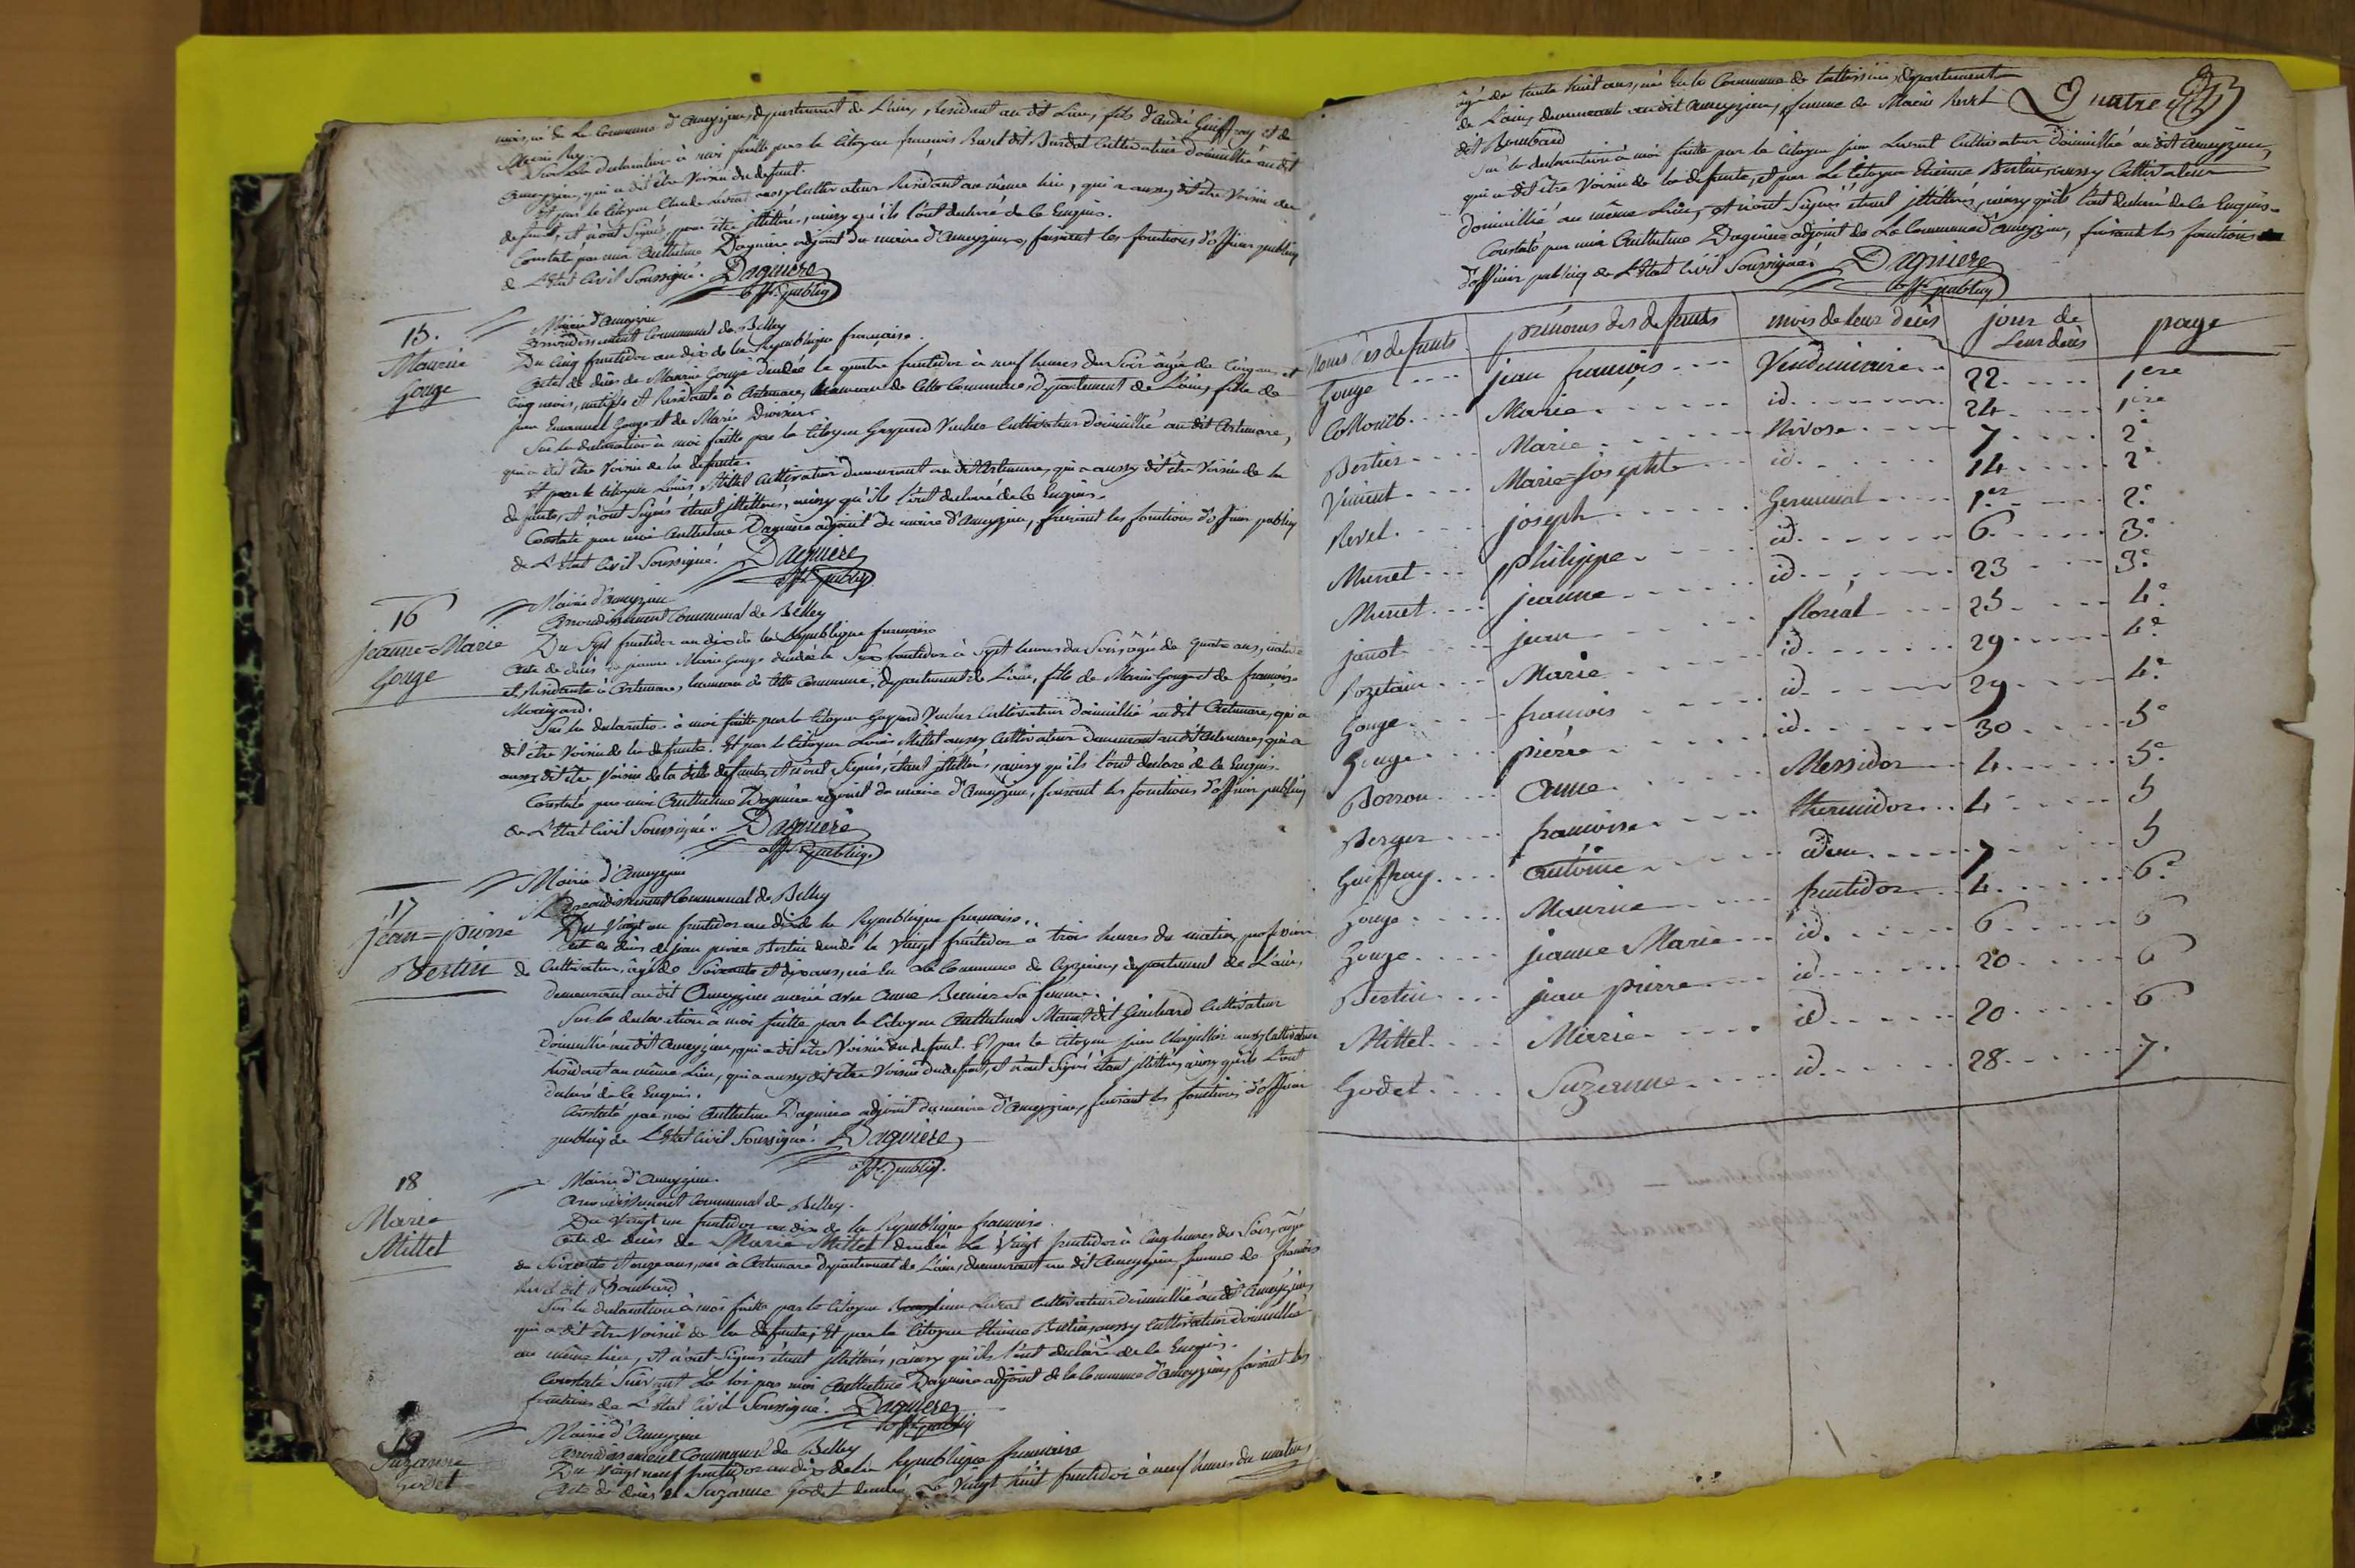 mois, né de la Commune d'Ameyzieu, departement de L'ain, Residant au dit Lieu, fils d'André Guiffray et de
Marie Rey.
Sur la declaration à moi faitte par le Citoyen francois Revel dit Cultivateur domicillié au dit
Ameyzieu, qui a dit être Voisin du defunt.
Et par le Citoyen Claude aussy Cultivateur Residant au même lieu, qui a aussy dit être Voisin du
defunt, et n'ont Signé, pour être illittérés, ainsy qu'ils l'ont declaré de le Enquis.
Constaté par moi Anthelme Daguiere adjoint du maire d'Ameyzieu, faisant les fonctions d'officier publiq
de L'Etat Civil Soussigné. Daguiere
off. publiq
15.
Maurise
Gouge
Mairie d'Ameyzieu
Arrondissement Communal de Belley
Du Cinq fructidor an dix de la Republique francaise.
Acte de décès de Maurise Gouge décédée le quatre fructidor à neuf heures du Soir âgée de Cinq ans, et
Cinq mois, native et Residante à Artemare, hameau de cette Commune, departement de L'ain, fille de
jean Emanuel Gouge et de Marie
Sur la declaration à moi faitte par le Citoyen Gaspard Vuches Cultivateur domicillié au dit Artemare,
qui a dit être Voisin de la defunte.
Et par le Citoyen Louis Mittel Cultivateur demeurant au dit Artemare, qui a aussy dit être Voisin de la
defunte, et n'ont Signés étant illittérés, ainsy qu'ils l'ont declaré de le Enquis.
Constaté par moi Anthelme Daguiere adjoint du maire d'Ameyzieu, faisant les fonctions d'officier publiq
de L'Etat Civil Soussigné. Daguiere
off. publiq
16
jeanne=Marie
Gouge
Mairie d'Ameyzieu
Arrondissement Communal de Belley
Du Sept fructidor an dix de la Republique francaise
Acte de décès de jeanne Marie Gouge décédée le Six fructidor à Sept heures du Soir, âgée de quatre ans, native
et Residante à Artemare, hameau de cette Commune, departement de L'ain, fille de Marin Gouge et de francoise
Sur la declaration à moi faitte par le Citoyen Gaspard Vuches Cultivateur domicillié au dit Artemare, qui a
dit être Voisin de la defunte. Et par le Citoyen Louis Mittel aussy Cultivateur demeurant au dit Artemare, qui a
aussy dit être Voisin de la ditte defunte, et n'ont Signés, étant illittérés, ainsy qu'ils l'ont declaré de le Enquis.
Constaté par moi Anthelme Daguiere adjoint du maire d'Ameyzieu, faisant les fonctions d'officier publiq
de L'Etat Civil Soussigné. Daguiere
off. publiq.
17
jean=pierre
Bertin
Mairie d'Ameyzieu
Arrondissement Communal de Belley
Du Vingt un fructidor an dix de la Republique francaise.
Acte de décès de jean pierre Bertin décédé le Vingt fructidor à trois heures du matin, profession
de Cultivateur, âgé de Soixante et dix ans, né En la Commune de Ceyzerieu, departement de L'ain,
demeurant au dit Ameyzieu marié avec Anne Sa femme.
Sur la declaration à moi faitte par le Citoyen Anthelme Munet dit Guichard Cultivateur
domicillié au dit Ameyzieu, qui a dit être Voisin du defunt. Et par le Citoyen jean aussy Cultivateur
Residant au même Lieu, qui a aussy dit être Voisin du defunt, et n'ont Signé étant illittérés, ainsy qu'ils l'ont
declaré de le Enquis.
Constaté par moi Anthelme Daguiere adjoint du maire d'Ameyzieu, faisant les fonctions d'officier
publiq de L'Etat Civil Soussigné. Daguiere
off. publiq.
18
Marie
Mittel
Mairie d'Ameyzieu.
Arrondissement Communal de Belley.
Du Vingt un fructidor an dix de la Republique francaise.
Acte de décès de Marie Mittel décédée Le Vingt fructidor à Cinq heures du Soir, âgée
de Soixante et onze ans, née à Artemare departement de L'ain, demeurant au dit Ameyzieu, femme de francois
Revel dit Bombard
Sur la declaration à moi faitte par le Citoyen jean Cultivateur domicillié au dit Ameyzieu,
qui a dit être Voisin de la defunte; Et par le Citoyen Etienne Bertin, aussy Cultivateur domicillié
au même lieu, et n'ont Signés étant illittérés, ainsy qu'ils l'ont declaré de le Enquis.
Constaté Suivant La loi par moi Anthelme Daguiere adjoint de la Commune d'Ameyzieu, faisant les
fonctions de L'Etat Civil Soussigné. Daguiere
off. publiq
19
Suzanne
Godet
Mairie d'Ameyzieu
Arrondissement Communal de Belley
Du Vingt neuf fructidor an dix de la Republique francaise
Acte de décès de Suzanne Godet décédée Le Vingt huit fructidor à neuf heures du matin,
âgée de trente huit ans, née En la Commune de departement
de L'ain, demeurante au dit Ameyzieu, femme de Marin Revel
dit Bombard
Quatre
Sur la declaration à moi faitte par le Citoyen jean Cultivateur domicillié au dit Ameyzieu,
qui a dit être Voisin de la defunte, et par Le Citoyen Etienne Bertin, aussy Cultivateur
domicillié au même Lieu, et n'ont Signés étant illittérés, ainsy qu'ils l'ont declaré de le Enquis.
Constaté par moi Anthelme Daguiere adjoint de La Commune d'Ameyzieu, faisant les fonctions
d'officier publiq de L'Etat Civil Soussigné. Daguiere
off. publiq
Noms des defunts prénoms des defunts mois de leur décès jour de Leur décès page
Gouge jean françois Vendemiaire 22 1ere
Collomb Marie id. 24 1ere
Bertin Marie Nivose 7 2e
Vincent Marie=josephte id. 14 2e
Revel joseph Germinal 1er 2e
Munet philippe id. 6 3e
Munet jeanne id. 23 3e
janot jean floréal 25 4e
Rozetain Marie id. 29 4e
Gouge francois id. 29 4e
Gouge pierre id. 30 5e
Borron Anne Messidor 4 5e
Berger francoise thermidor 4 5
Guiffray Antoine idem 7 5
Gouge Maurise fructidor 4 6e
Gouge jeanne Marie id. 6 6
Bertin jean pierre id. 20 6
Mittel Marie id. 20 6
Godet Suzanne id. 28 7.